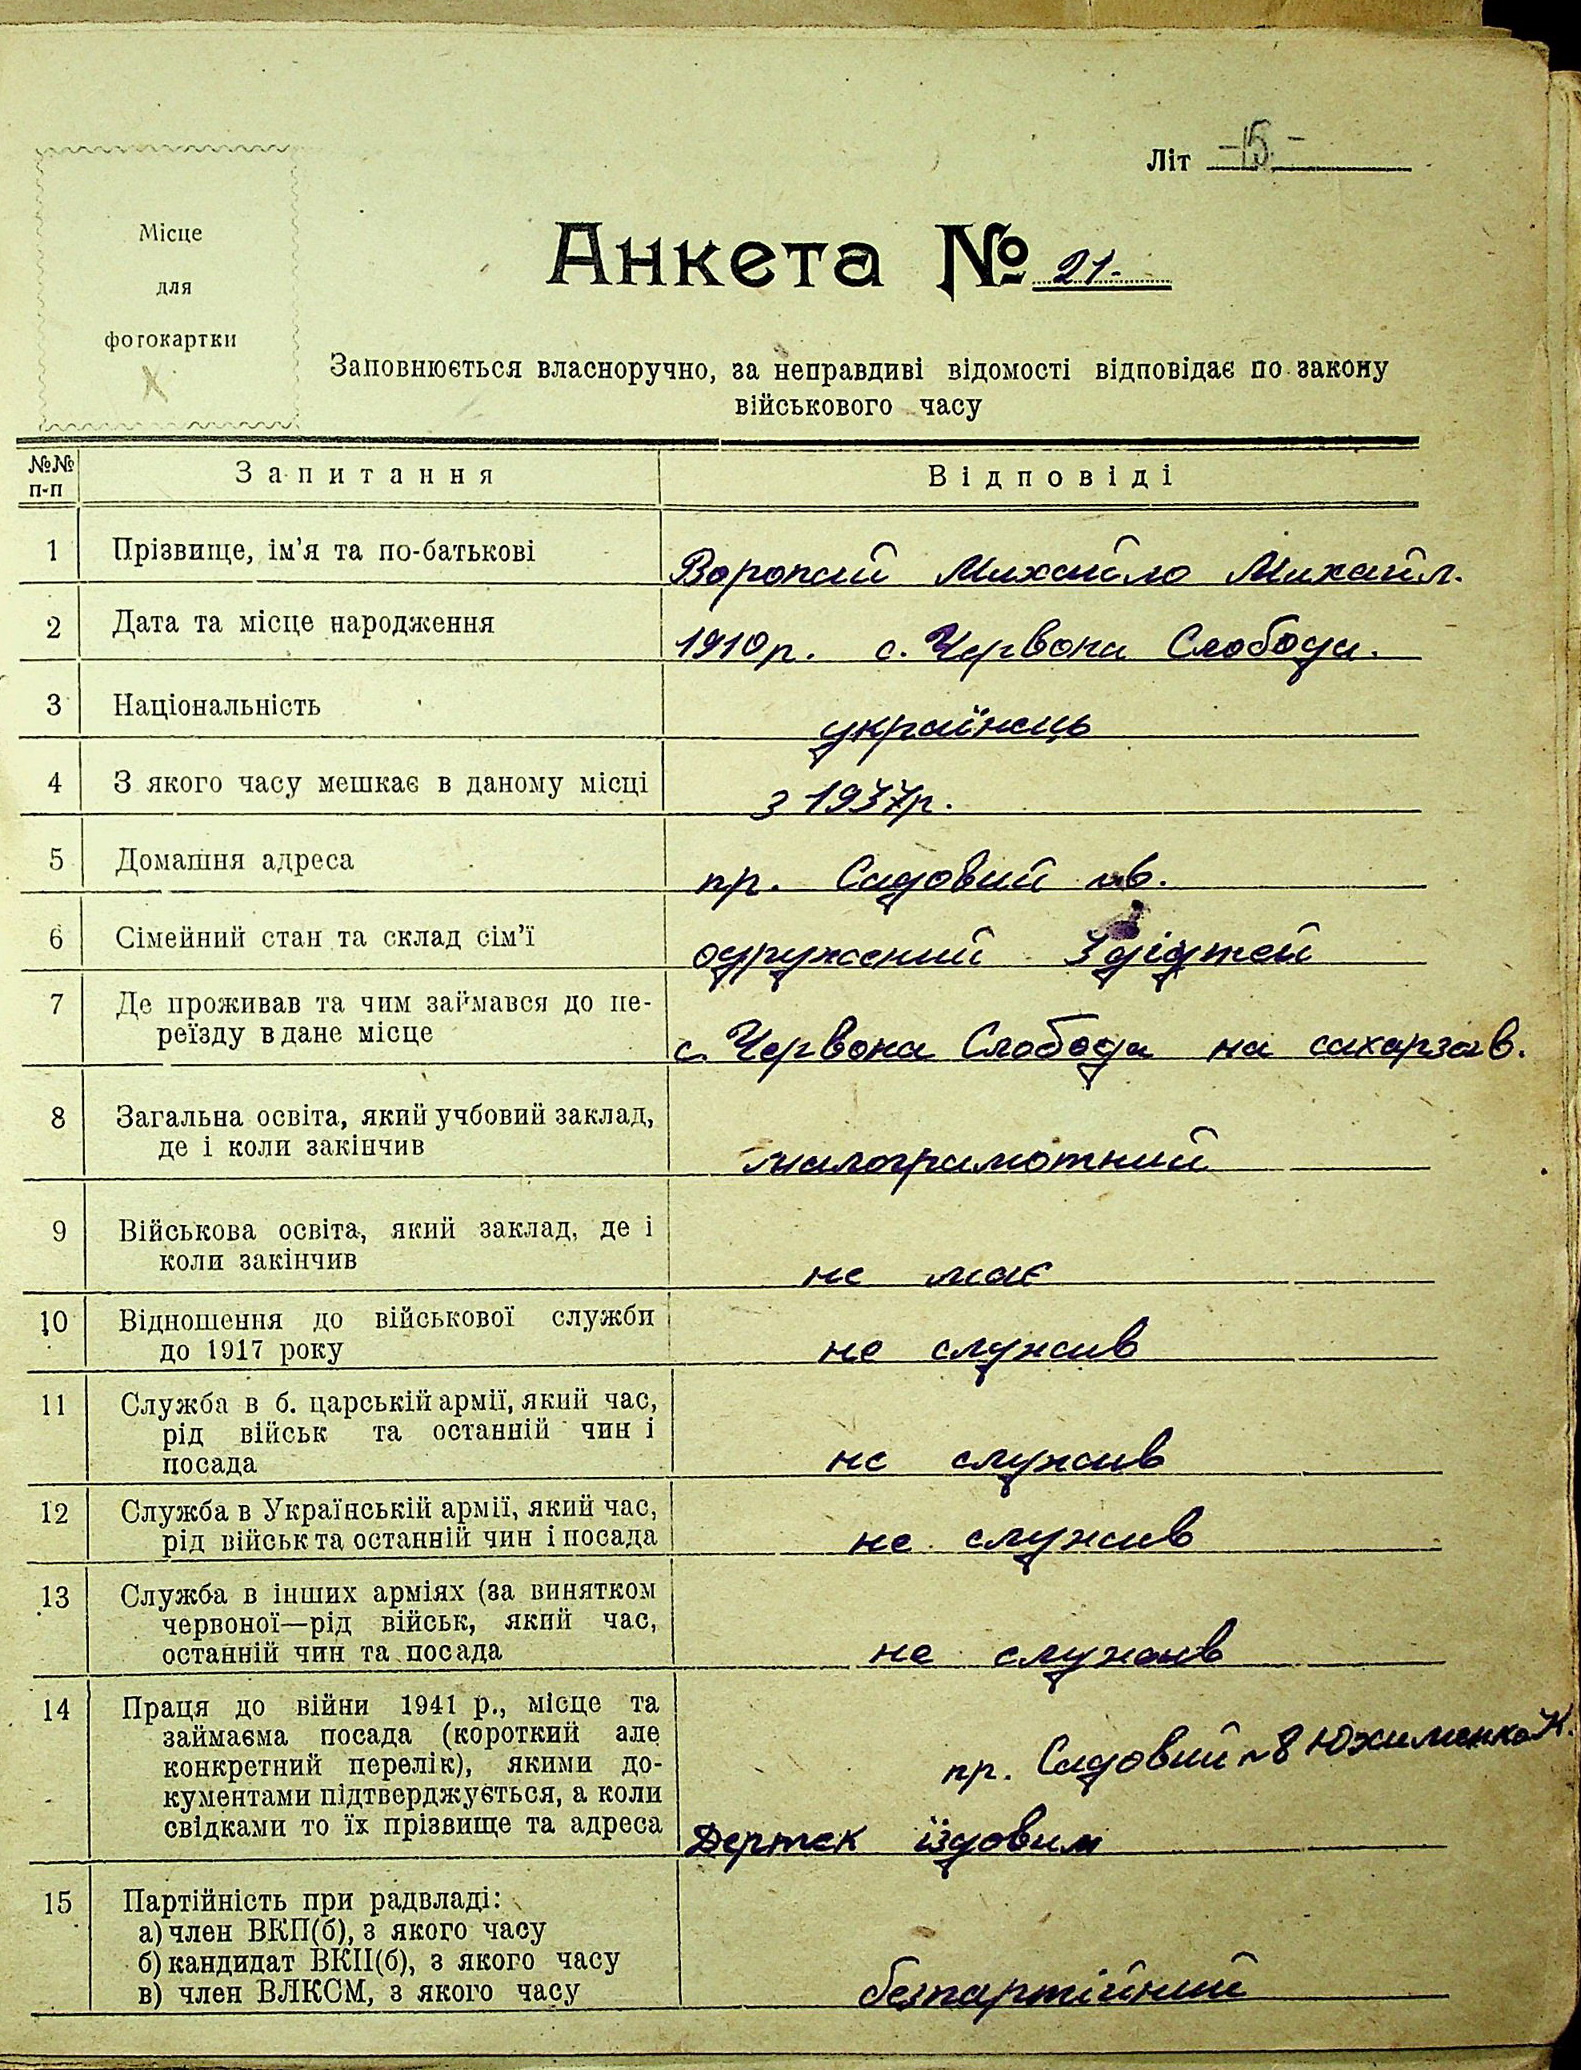 Літ -15.-
Місце
для
фотокартки
Анкета № 21.
Заповнюється власноручно, за неправдиві відомості відповідає по закону
військового часу
№№
п-п
Запитання
Відповіді
1 Прізвище, ім'я та по-батькові
Воропай Михайло Михайл.
2 Дата та місце народження
1910р. с. Червона Слобода.
3 Національність
українець
4 З якого часу мешкає в даному місці
з 1937р.
5 Домашня адреса
пр. Садовий
6 Сімейний стан та склад сім'ї
одружений 3 дідтей
7 Де проживав та чим займався до пе-
реїзду в дане місце
с. Червона Слобода на сахарзав.
8 Загальна освіта, який учбовий заклад,
де і коли закінчив
малограмотний
9 Військова освіта, який заклад, де і
коли закінчив
не має
10 Відношення до військової служби
до 1917 року
не служив
11 Служба в б. царській армії, який час,
рід військ та останній чин і
посада
не служив
12 Служба в Українській армії, який час,
рід військ та останній чин і посада
не служив
13 Служба в інших арміях (за винятком
червоної—рід військ, який час,
останній чин та посада
не служив
14 Праця до війни 1941 р., місце та
займаєма посада (короткий але
конкретний перелік), якими до-
кументами підтверджується, а коли
свідками то їх прізвище та адреса
пр. Садовий №8 Юхименко К.
їздовим
15 Партійність при радвладі:
а) член ВКП(б), з якого часу
б) кандидат ВКП(б), з якого часу
в) член ВЛКСМ, з якого часу
безпартійний